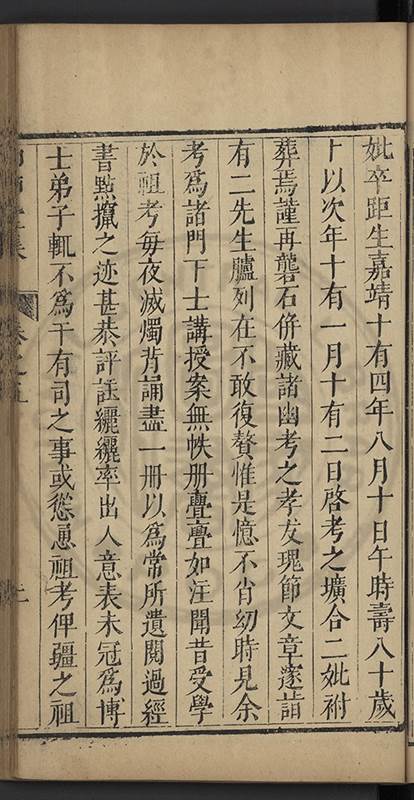 妣卒距生嘉靖十有四年八月十日午時壽八十歲
卜以次年十有一月十有二日啓考之壙合二妣祔
葬焉謹再礱石併藏諸幽考之孝友瑰節文章邃詣
有二先生臚列在不敢復贅惟是憶不肖幼時見余
考爲諸門下士講授案無帙册亹亹如注聞昔受學
於祖考每夜滅燭背誦盡一册以爲常所遺閱過經
書點擸之迹甚恭評註纚纚率出人意表未冠爲博
士弟子輒不爲干有司之事或慫恿祖考俾彊之祖
卷之五